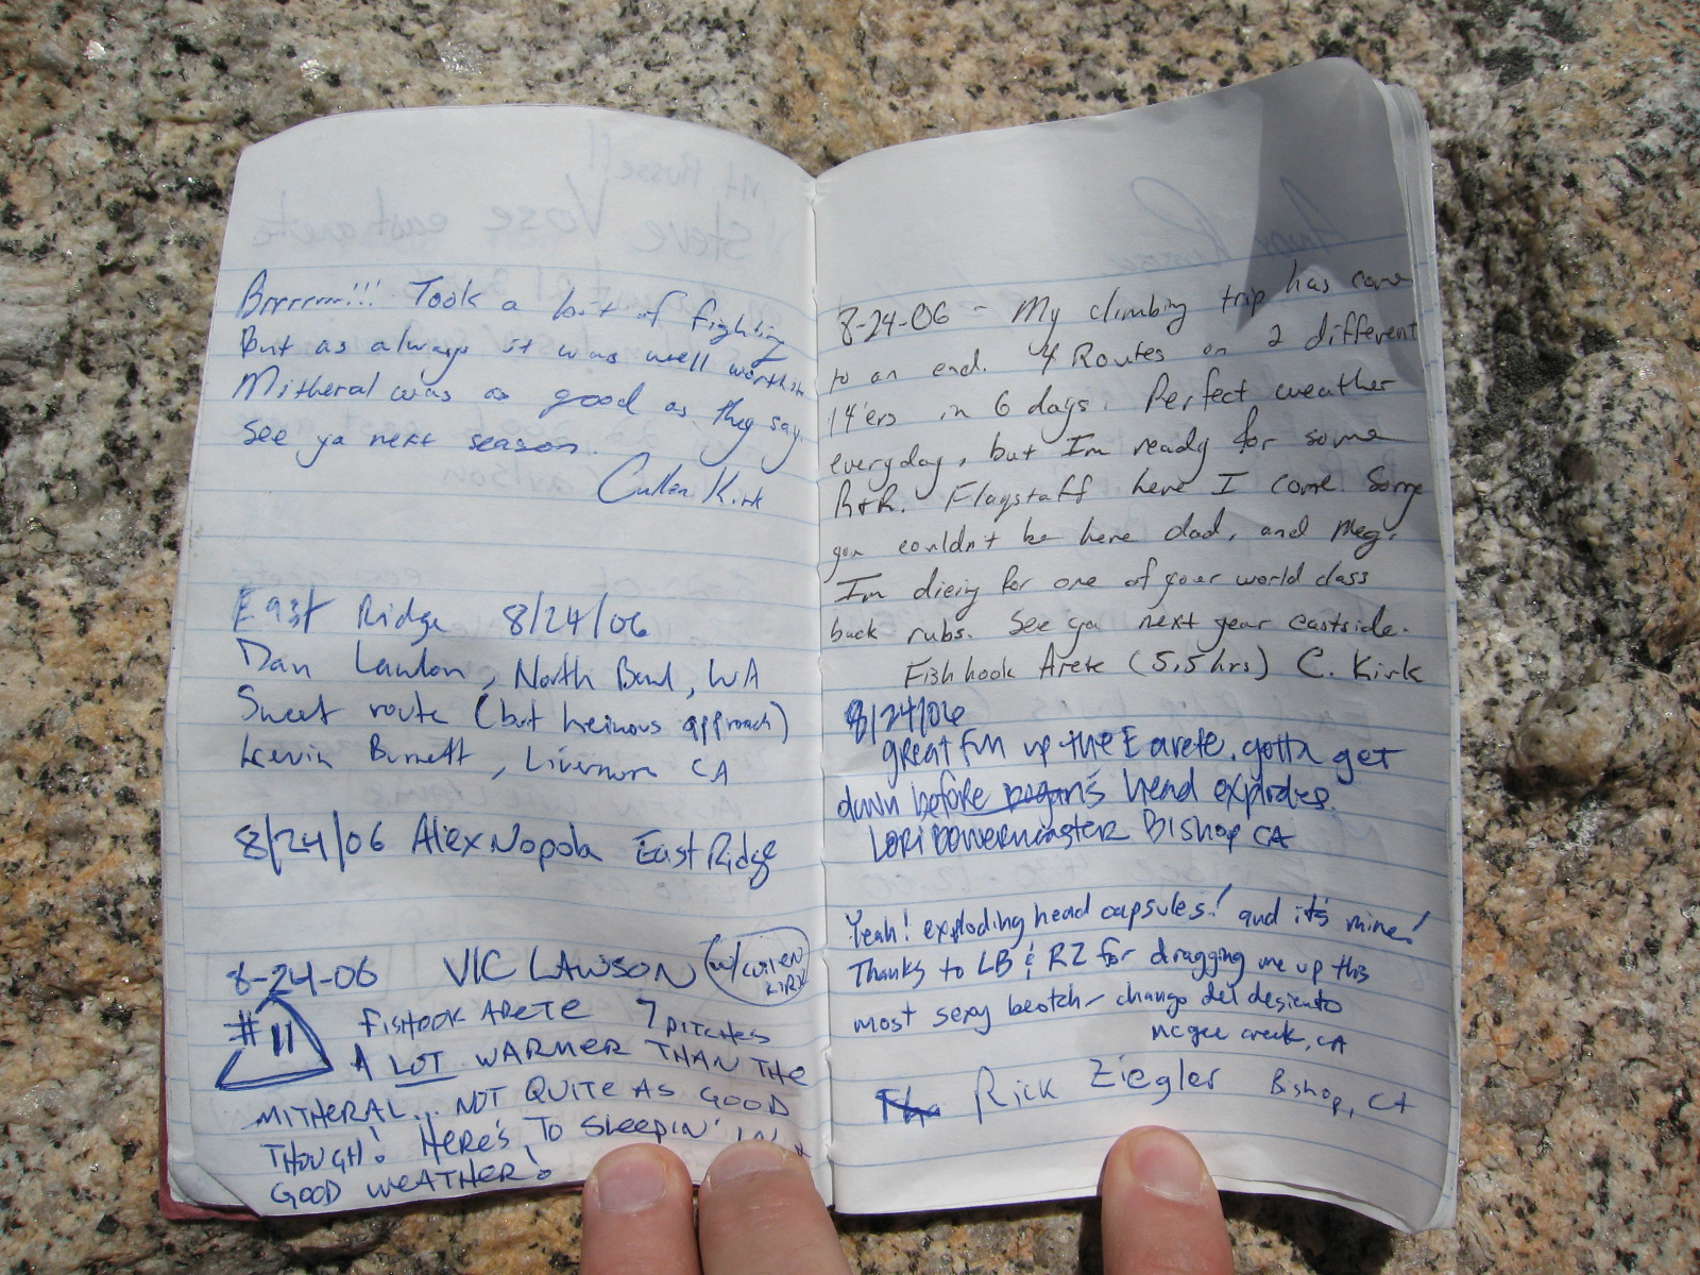 Brrrrrrr!!! Took a bit of fighting
But as always it was well worth it
Mitheral was as good as they say.
See ya next season.
Cullen Kirk
East Ridge 8/24/06
Dan Lawton, North Bend, WA
Sweet route (but heinous approach)
Kevin Burnett, Livermore CA
8/24/06 Alex Nopola East Ridge
8-24-06 VIC LAWSON (w/CULLEN
KIRK
#11
FISHOOK ARETE 7 PITCHES
A LOT WARMER THAN THE
MITHERAL... NOT QUITE AS GOOD
THOUGH! HERE'S TO SLEEPIN' IN &
GOOD WEATHER!
8-24-06 - My climbing trip has come
to an end. 4 Routes on 2 different
14'ers in 6 days. Perfect weather
everyday, but I'm ready for some
R+R. Flagstaff here I come. Sorry
you couldn't be here dad, and Meg,
I'm dieing for one of your world class
back rubs. See ya next year eastside.
Fishhook Arete (5.5hrs) C. Kirk
8/24/06
great fun up the E arete. gotta get
down before head explodes.
Lori Bishop CA
Yeah! exploding head capsules! and it's mine!
Thanks to LB & RZ for dragging me up this
most sexy beotch - chango del desierto
mcgee creek, CA
Rick Ziegler Bishop, CA
Mt. Russell
Steve Vose east arete